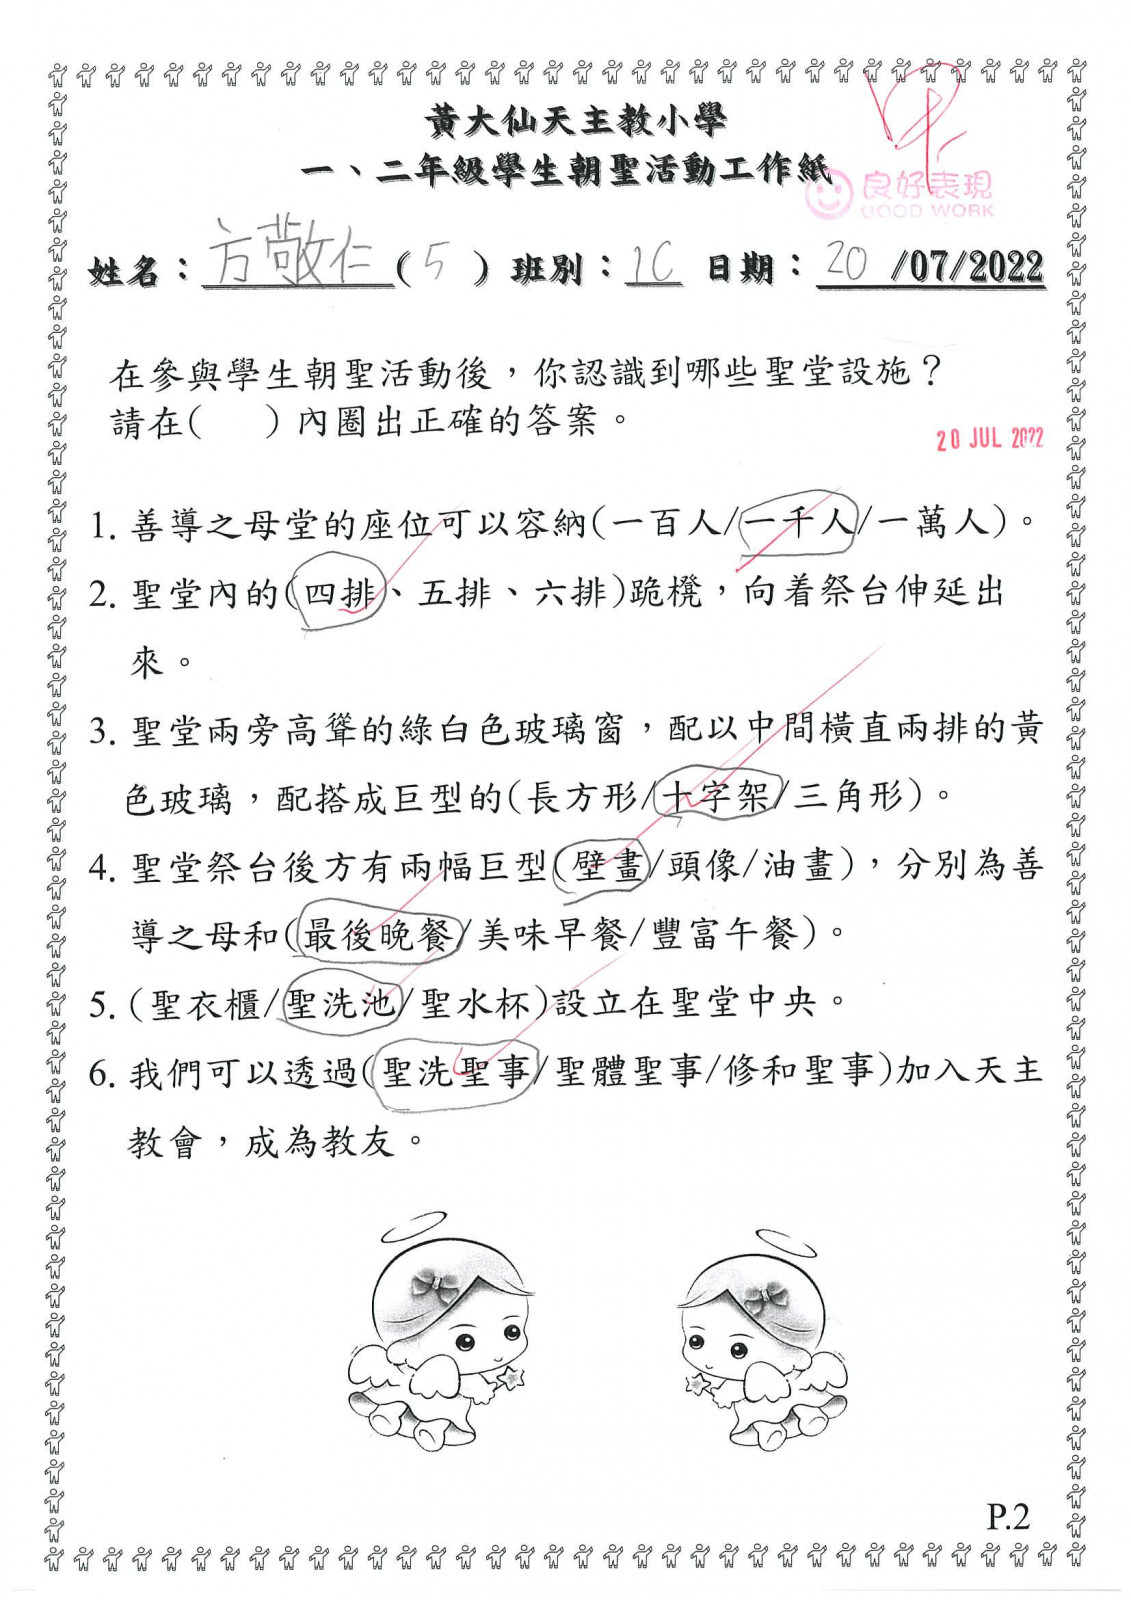 黃大仙天主教小學
一、二年級學生朝聖活動工作紙
甲
良好表現
GOOD WORK
姓名：方敬仁(5)班別：1C 日期：20/07/2022
在參與學生朝聖活動後，你認識到哪些聖堂設施？
請在(　)內圈出正確的答案。
20 JUL 2022
1. 善導之母堂的座位可以容納(一百人/一千人/一萬人)。
2. 聖堂內的(四排、五排、六排)跪櫈，向着祭台伸延出
來。
3. 聖堂兩旁高聳的綠白色玻璃窗，配以中間橫直兩排的黃
色玻璃，配搭成巨型的(長方形/十字架/三角形)。
4. 聖堂祭台後方有兩幅巨型(壁畫/頭像/油畫)，分別為善
導之母和(最後晚餐/美味早餐/豐富午餐)。
5. (聖衣櫃/聖洗池/聖水杯)設立在聖堂中央。
6. 我們可以透過(聖洗聖事/聖體聖事/修和聖事)加入天主
教會，成為教友。
P.2